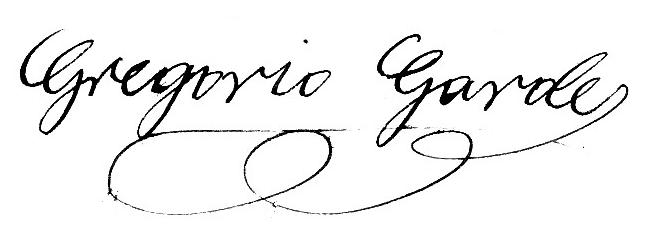 Gregorio Garde